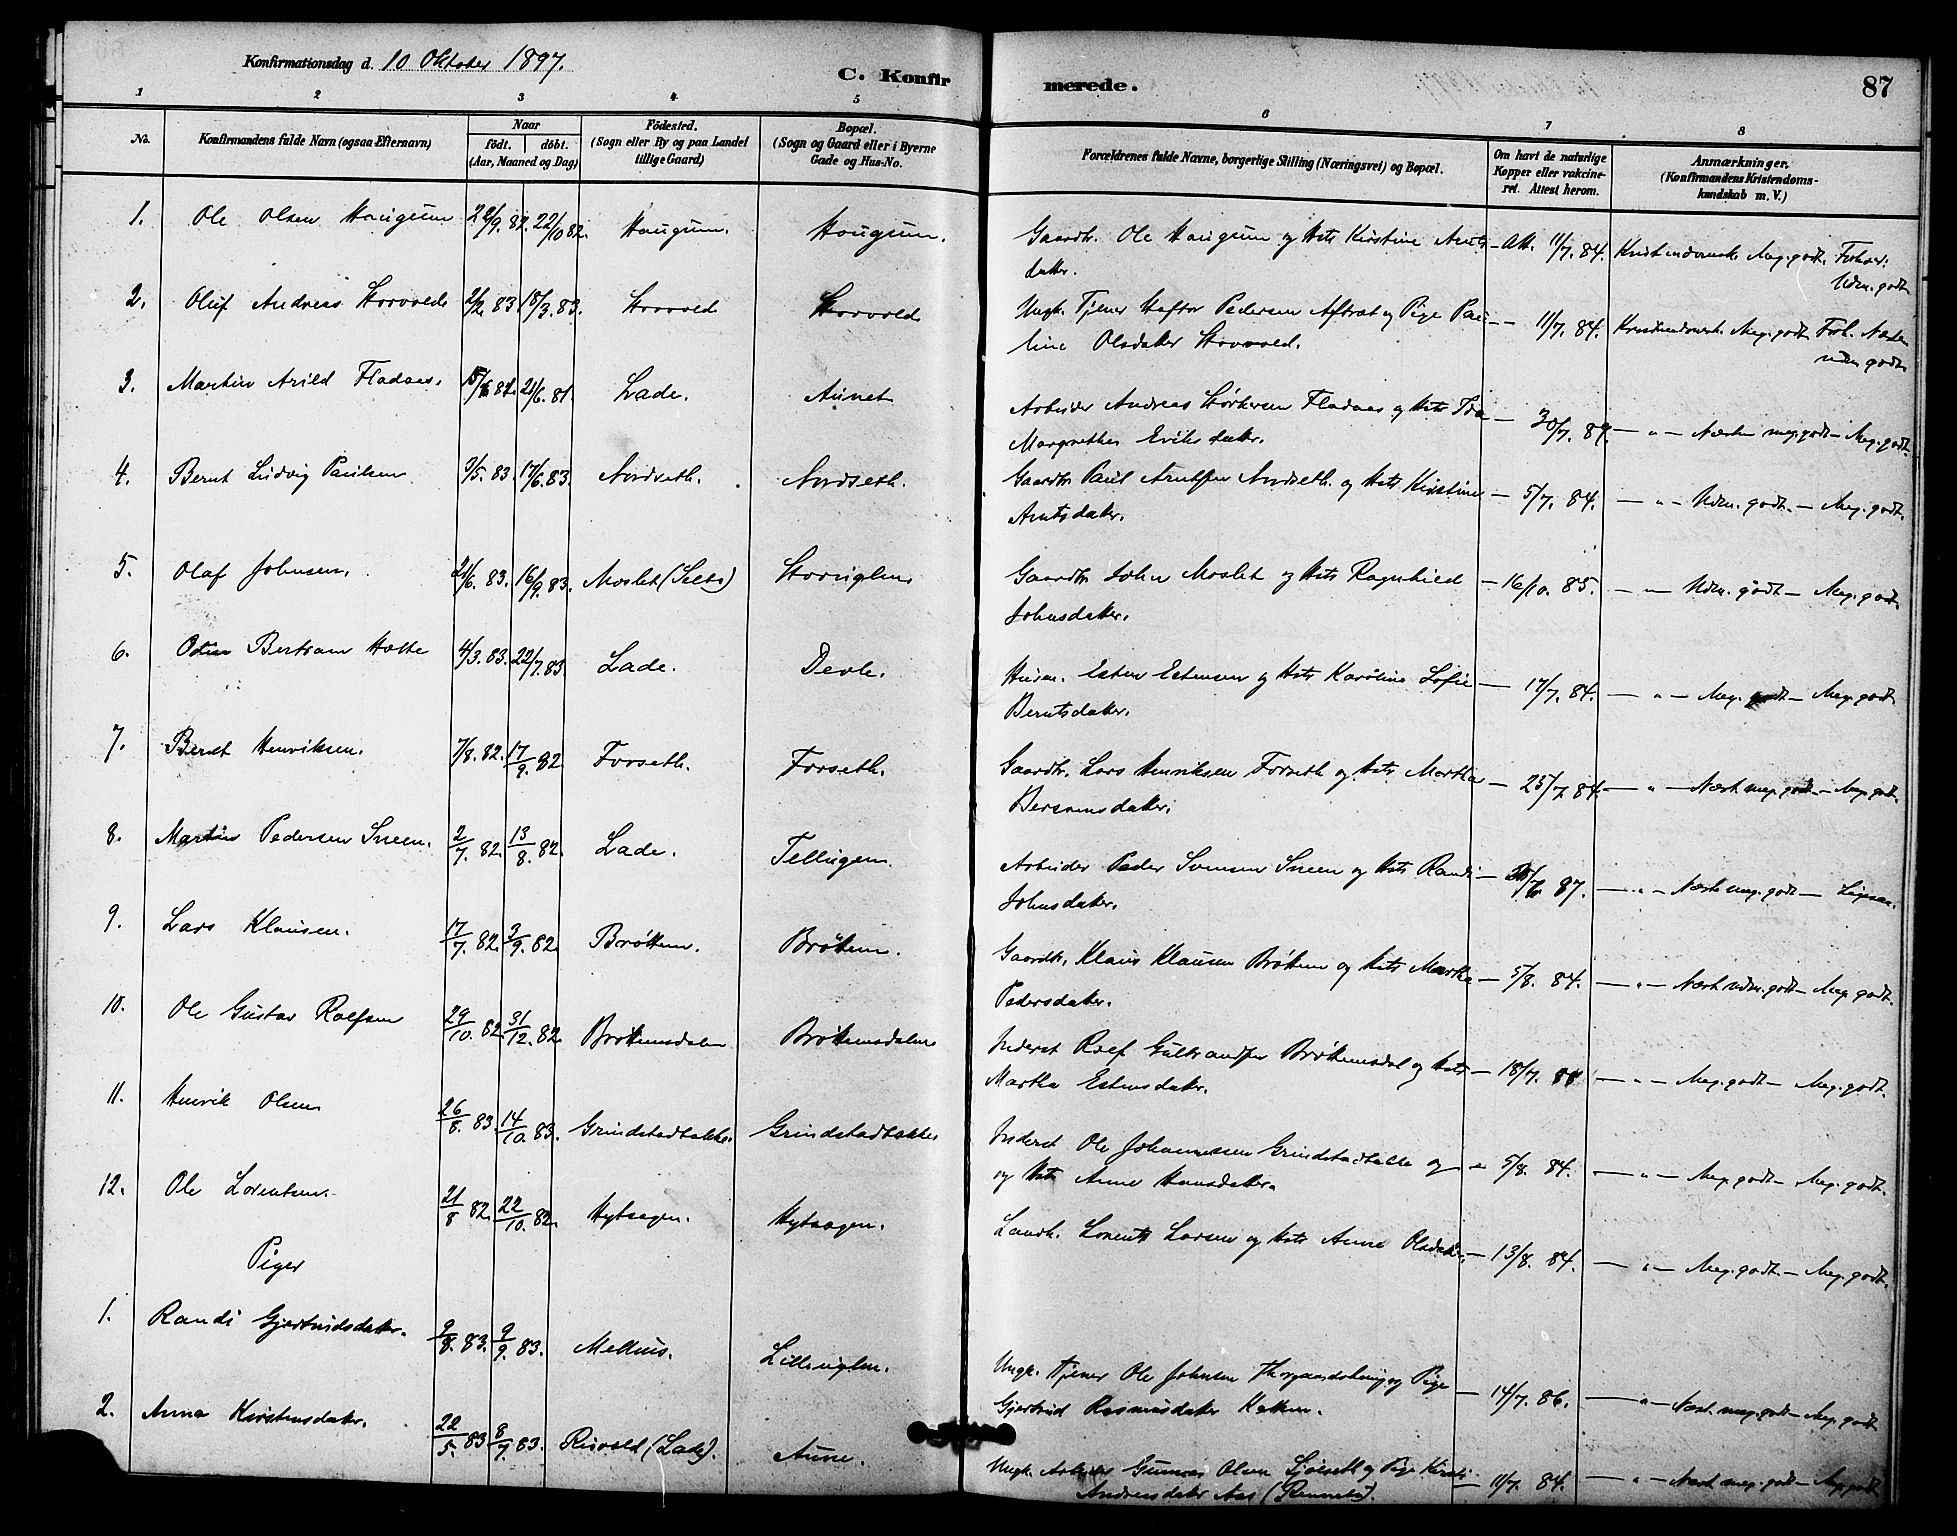 Konfirmationsdag d. 10 Oktober 1897.
C. Konfirmerede.
87
1 2 3 4 5 6 7 8
No.
Konfirmandens fulde Navn (ogsaa Efternavn)
Naar
født. døbt.
(Aar, Maaned og Dag)
Fødested.
(Sogn eller By og paa Landet
tillige Gaard)
Bopæl.
(Sogn og Gaard eller i Byerne
Gade og Hus-No.
Forældrenes fulde Navne, borgerlige Stilling (Næringsvei) og Bopæl.
Om havt de naturlige
Kopper eller vakcine-
ret. Attest herom.
Anmærkninger.
(Konfirmandens Kristendoms-
kundskab m. V.)
1. Ole Olsen Haugum 22/10 82. Haugum. Haugum. Gaardbr. Ole Haugum og Hstr Kirstine Arnts- Att. 11/7. 84. Meg. godt.
datter. Udm. godt
2. Oluf Andreas Storvold 2/2 83 18/3. 83. Storvold Storvold Ungk. Tjener Pedersen og Pige Pau- 11/7. 84. Meg. godt
line Olsdatter Storvold. udm. godt
3. Martin Arild Fladaas. 21/6. 81. Lade. Aunet Arbeider Andreas Størkersen Fladaas og Hstr Ida
Margrethe Eriksdatter. 30/7. — " — Næsten meg. godt — Meg. godt
4. Bernt Ludvig Paulsen 9/5. 83. 17/6. 83. Nordseth. Nordseth. Gaardbr Paul Arntsen Nordseth og Hstr Kirstine — 5/7. 84. — " — Udm. godt. — Meg. godt.
Arntsdatter.
5. Olaf Johnsen. 21/6. 83. 16/9. 83. Moslet (Selbo) Storuglen Gaardbr John Moslet og Hstr Ragnhild — 16/10. 85. — " — Udm. godt — Meg. godt
Johnsdatter.
6. Odin Bertram Holte 4/3. 83. 22/7. 83. Lade. Devle. Husm. Esten Estensen og Hstr Karoline Sofie — 17/7. 84. — " — Meg. godt — Meg. godt
Berntsdatter.
7. Bernt Henriksen. 7/8. 82. 17/9. 82 Forseth. Forseth. Gaardbr. Lars Henriksen Forseth og Hstr Martha — 25/7. 84. — " — Næst meg. godt — Meg. godt.
8. Martin Pedersen Sneen. 2/7. 82. 13/8. 82. Lade. Tellugen Arbeider Peder Svensen Sneen og Hstr Randi — 87. — " — Næst meg. godt —
Johnsdatter.
9. Lars Klausen. 17/7. 82. 3/9. 82 Brøttem. Brøttem. Gaardbr. Klaus Klausen Brøttem og Hstr Martha — 5/8. 84. — " — Næst udm. godt — Meg. godt.
Pedersdatter.
10. Ole Gustav Rolfsen 29/10. 82. 31/12. 82. Brøttemsdalen Brøttemsdalen Inderst Rolf Gulbrandsen Brøttemsdal og Hstr — 18/7. 84 — " — Meg. godt — Meg. godt.
Martha Estensdatter.
11. Henrik Olsen 26/8. 83. 14/10. 83. Grindstadbakken Grindstadbakken Inderst Ole Johannessen Grindstadbakken og — 5/8. 84. — " — Meg. godt — Meg. godt.
og Hstr Anne Hansdatter.
12. Ole Lorentsen. 21/8 82. 22/10. 82. Hytaagen. Hytaagen. Landh. Lorents Larsen og Hstr Anne Olsdatter. — 13/8. 84. — " — Meg. godt. — Meg. godt.
Piger
1. Randi Gjertrudsdatter. 9/8. 83. 9/9. 83. Melhus. Lilleuglen. Ungk. Tjener Ole Johnsen og Pige — 14/7. 86. — " — Næst. meg. godt — Meg. godt
Gjertrud Rasmusdatter
2. Anna Kirstensdatter. 22/5. 83 8/7. 83. Risvold (Lade). Aune. Ungk. Arbeider Gunnar Olsen og Pige Kirsti — 11/7. 84. — " — Næst meg. godt — Meg. godt
Andreasdatter Aas